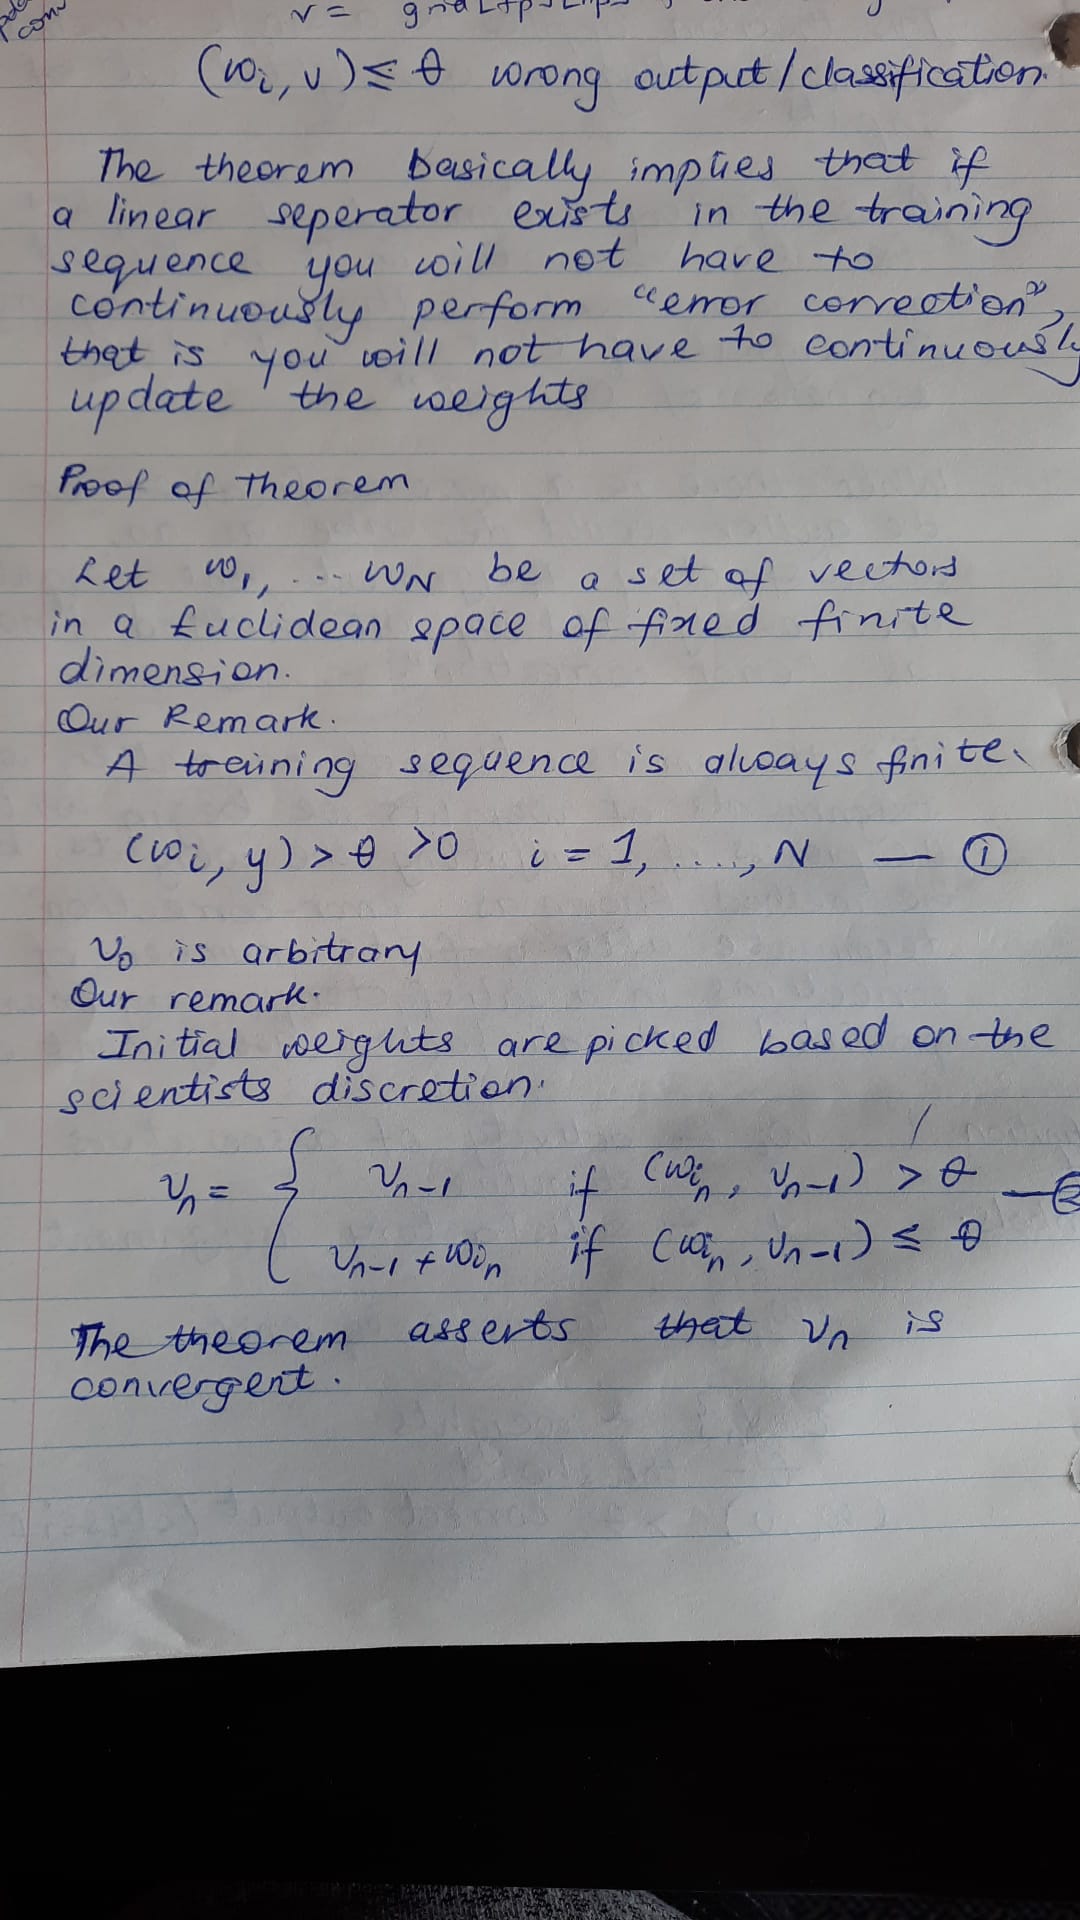 v =
(wi, v) ≤ θ wrong output/classification.
The theorem basically implies that if
a linear seperator exists in the training
sequence you will not have to
continuously perform "error correction",
that is you will not have to continuously
update the weights
Proof of Theorem
Let w1, ... wN be a set of vectors
in a Euclidean space of fixed finite
dimension.
Our Remark.
A training sequence is always finite.
(wi, y) > θ > 0 i = 1, ...., N — ①
v0 is arbitrary
Our remark.
Initial weights are picked based on the
scientists discretion.
vn = { vn-1 if (win, vn-1) > θ — ②
vn-1 + win if (win, vn-1) ≤ θ
The theorem asserts that vn is
convergent.